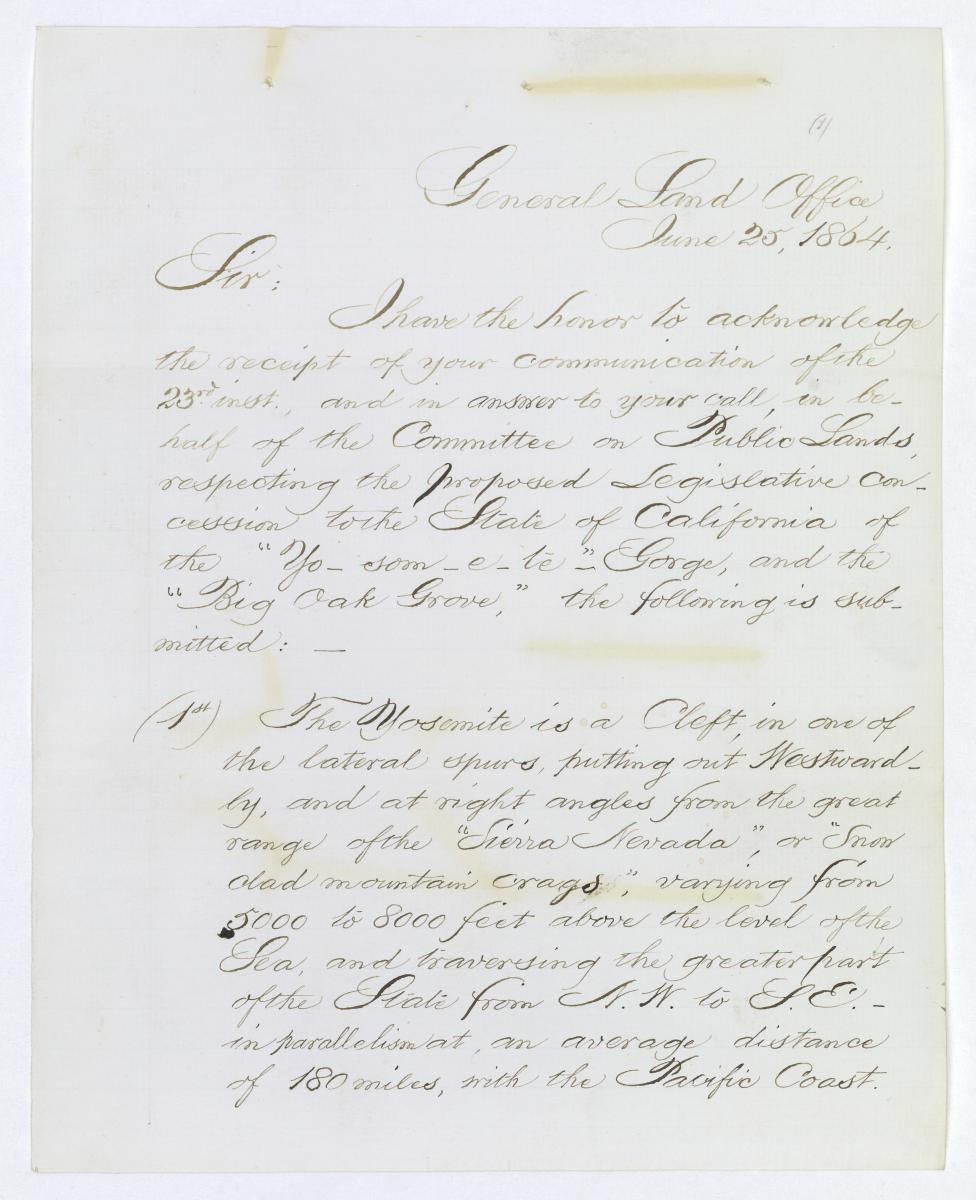 (1)
General Land Office
June 25, 1864.
Sir:
I have the honor to acknowledge
the receipt of your communication of the
23rd inst., and in answer to your call, in be-
half of the Committee on Public Lands,
respecting the proposed Legislative con-
cession to the State of California of
the "Yo-som-e-te"- Gorge, and the
"Big Oak Grove," the following is sub-
mitted: —
(1st) The Yosemite is a Cleft, in one of
the lateral spurs, putting out Westward-
ly, and at right angles from the great
range of the "Sierra Nevada", or "Snow
clad mountain crags", varying from
5000 to 8000 feet above the level of the
Sea, and traversing the greater part
of the State from N.W. to S.E. -
in parallelism at, an average distance
of 180 miles, with the Pacific Coast.